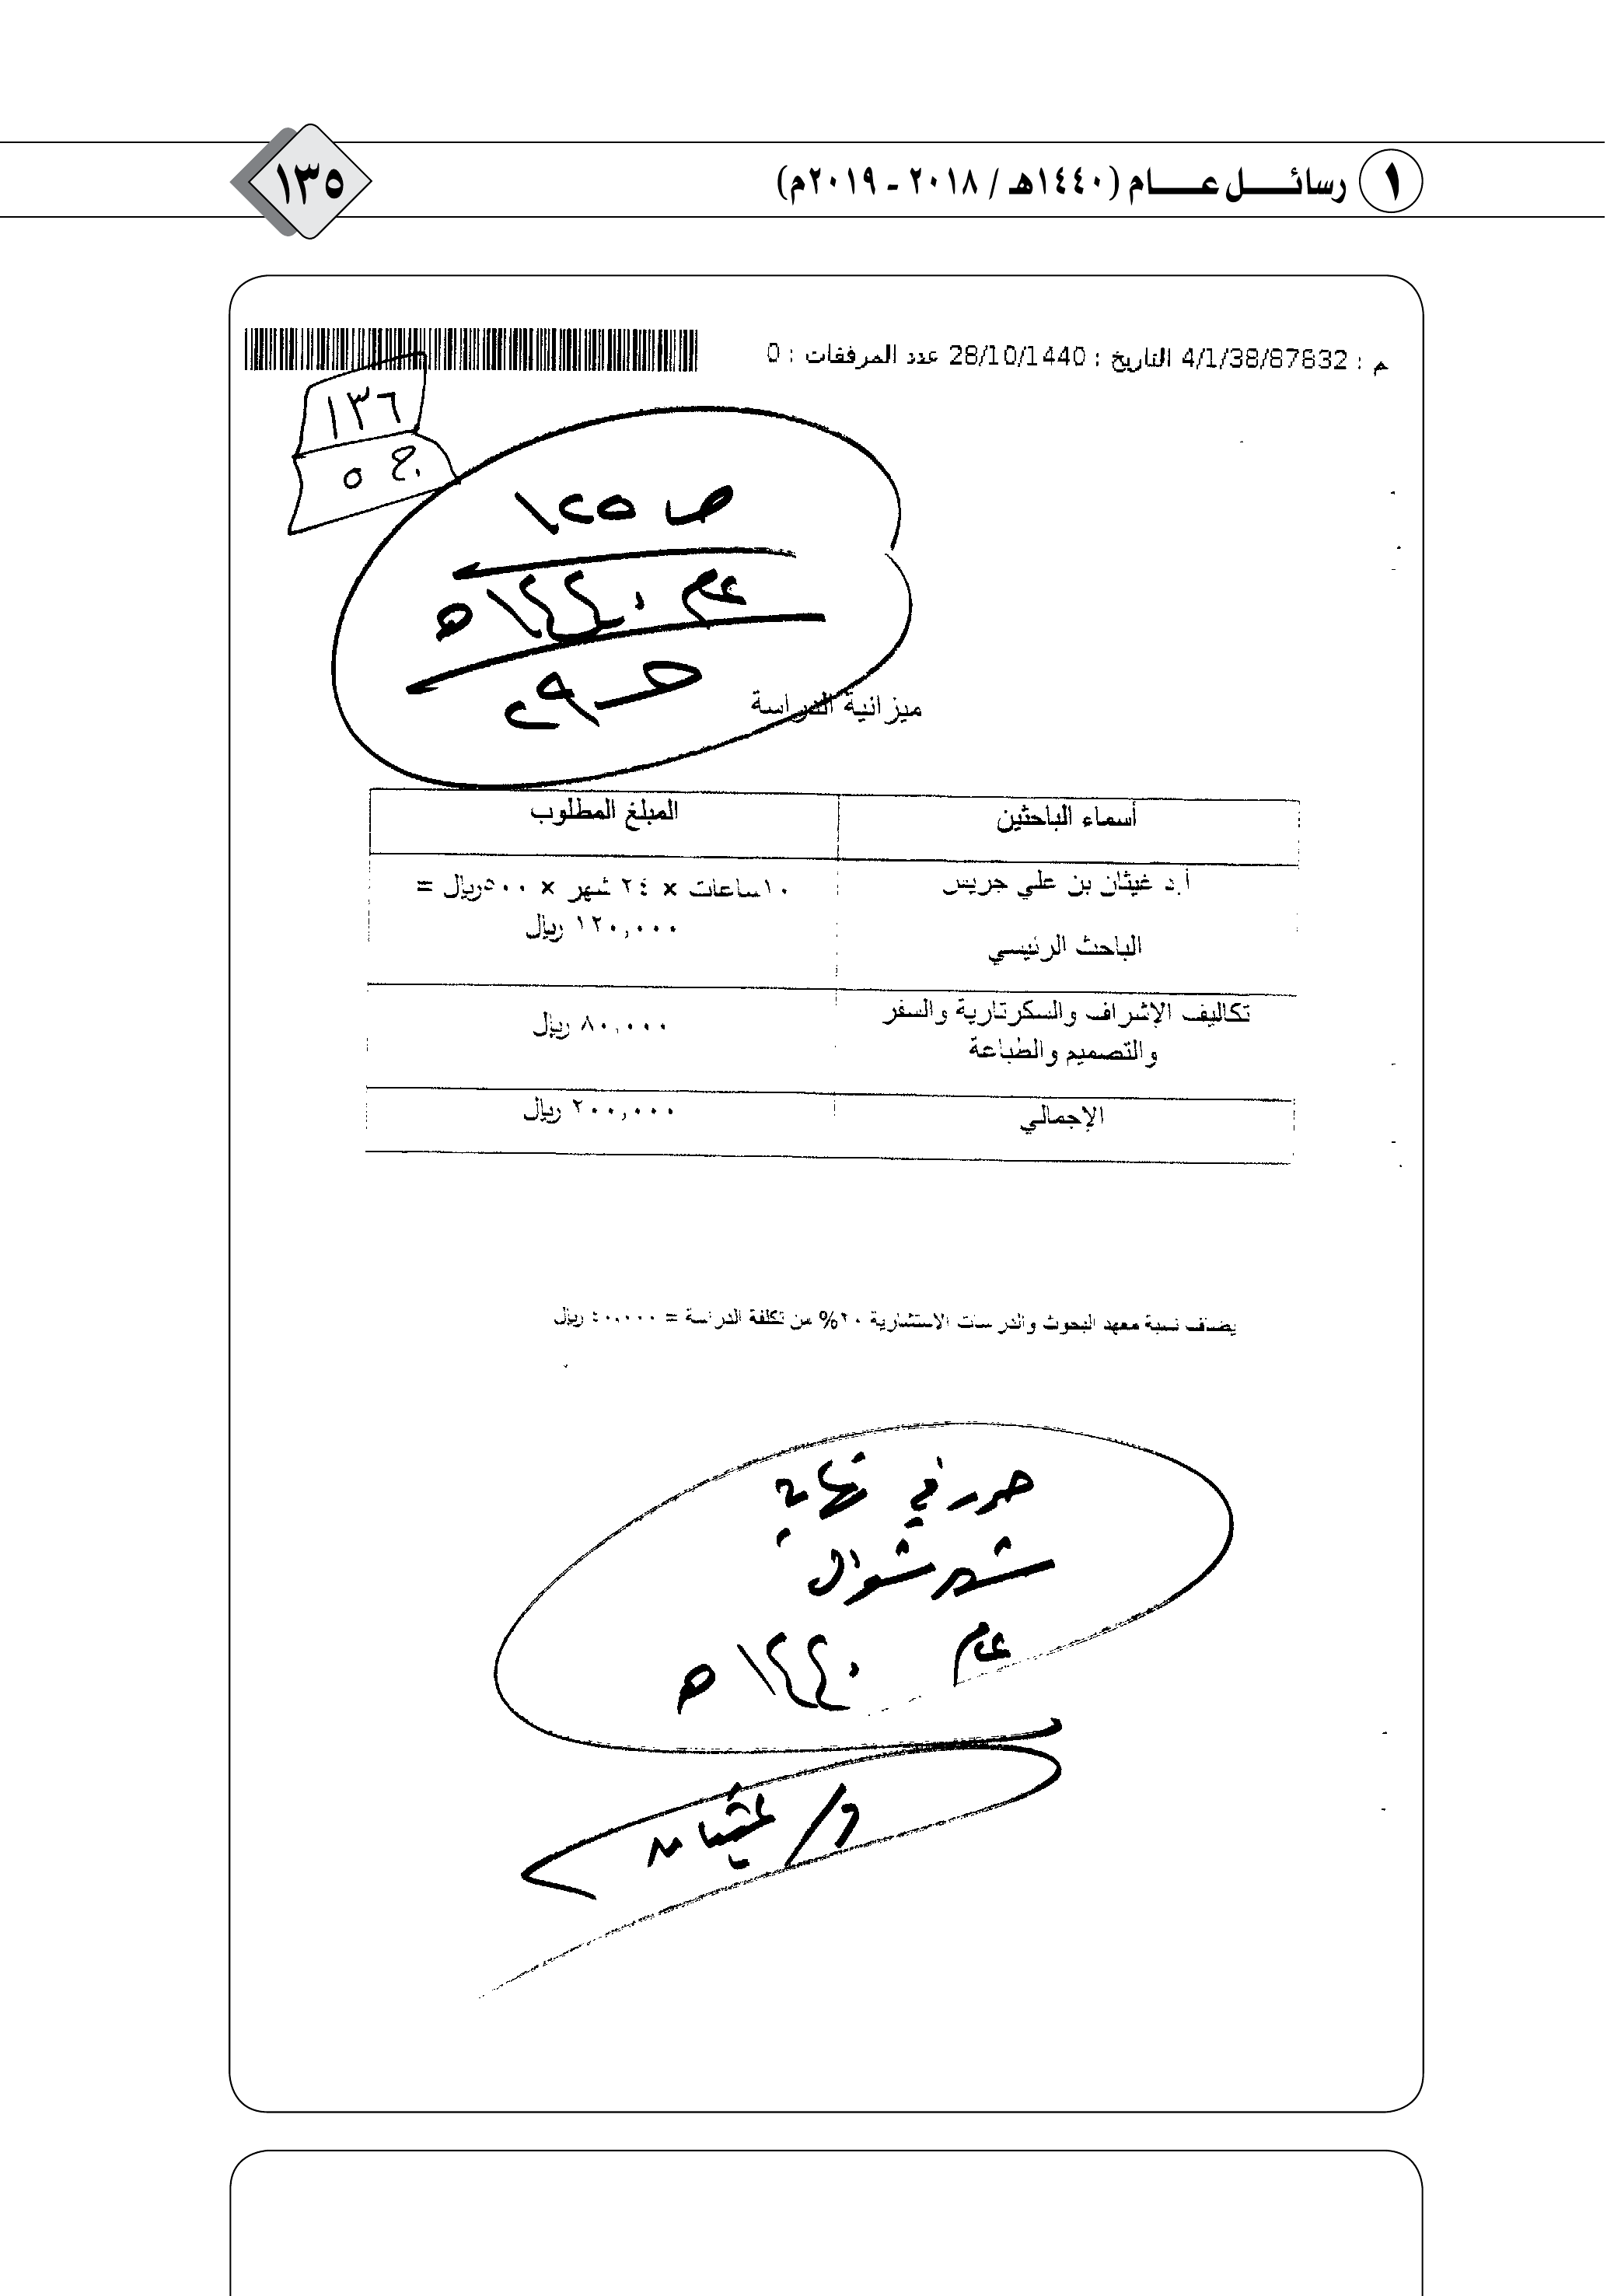 ١ رسائل عام (١٤٤٠هـ / ٢٠١٨ - ٢٠١٩م)
١٣٥
م : 4/1/38/87832 التاريخ : 28/10/1440 عدد المرفقات : 0
١٣٦
ج ٥
ص ١٢٥
عام ١٤٤٠ هـ
حـ ٢٩
ميزانية الدراسة
أسماء الباحثين المبلغ المطلوب
أ.د غيثان بن علي جريس ١٠ساعات × ٢٤ شهر × ٥٠٠ريال =
١٢٠,٠٠٠ ريال
الباحث الرئيسي
تكاليف الإشراف والسكرتارية والسفر ٨٠,٠٠٠ ريال
والتصميم والطباعة
الإجمالي ٢٠٠,٠٠٠ ريال
يضاف نسبة معهد البحوث والدراسات الاستشارية ٢٠% من تكلفة الدراسة = ٤٠,٠٠٠ ريال
حرر في نهاية
شهر شوال
عام ١٤٤٠ هـ
د/ غيثان